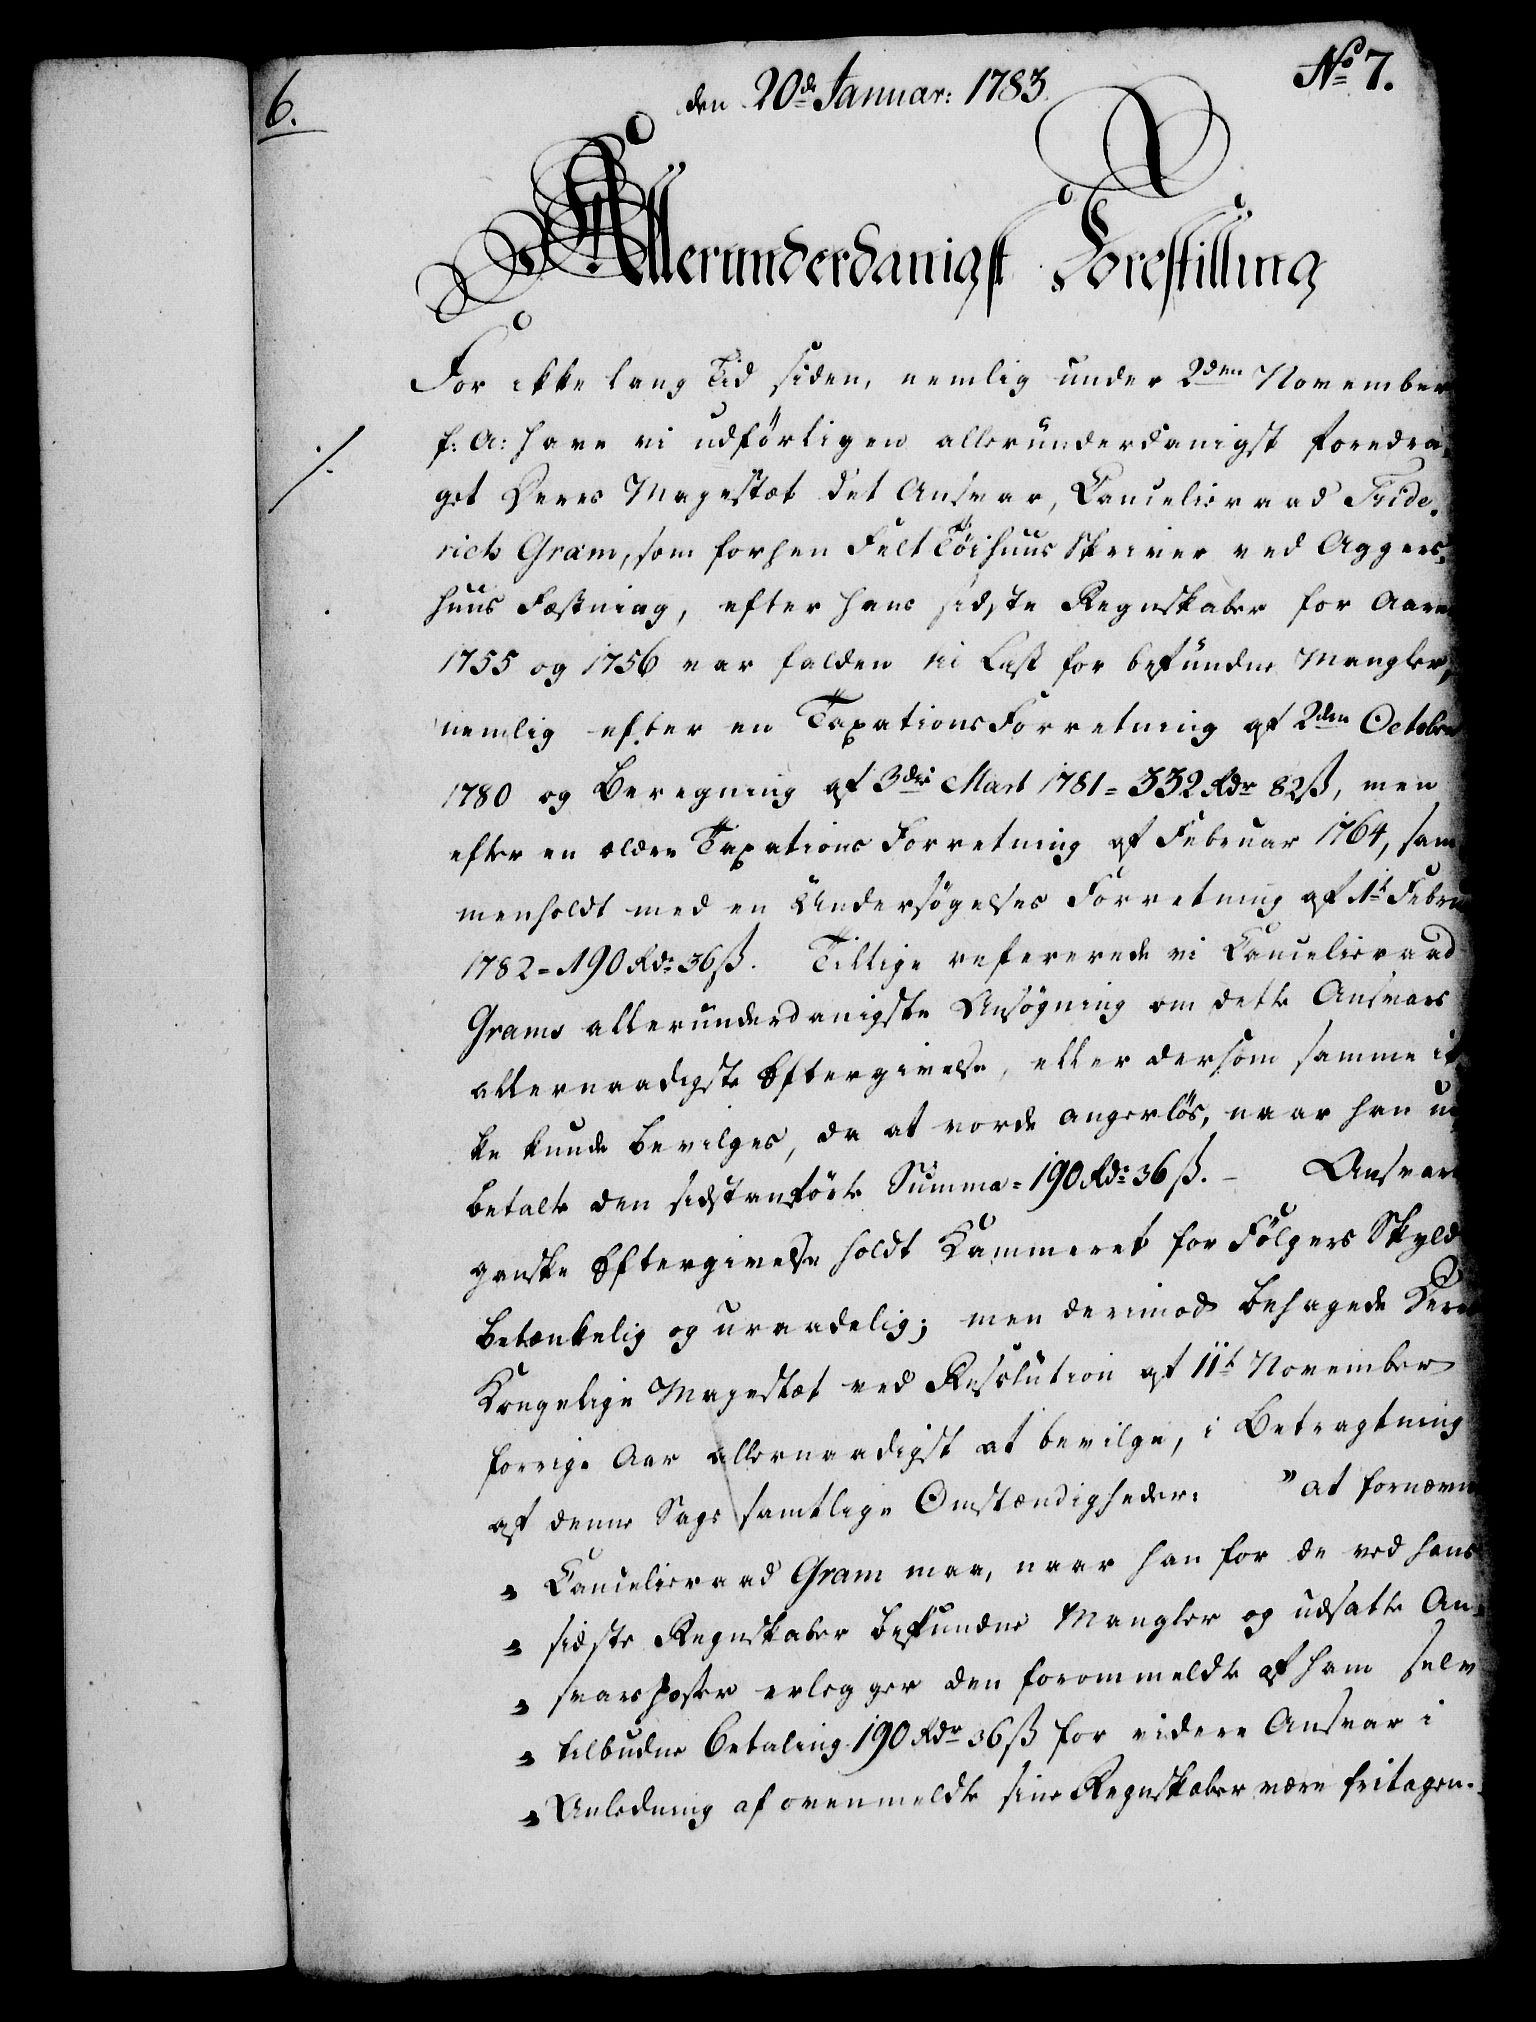 6.
den 20de Januar: 1783.
No 7.
Allerunderdanigst Forestilling
For ikke lang Tid siden, nemlig under 2den November
f: A: have vi udförligen allerunderdanigst foredra-
./.
get Deres Majestæt det Ansvar, Cancelieraad Fride-
rich Gram, som forhen Felt Töihuus Skriver ved Aggers-
huus Fæstning, efter hans sidste Regnskaber for Aaren
1755 og 1756 var falden til Last for befundne Mangler,
nemlig efter en Taxations Forretning af 2den October
1780 og Beregning af 3die Mart 1781 = 332 Rdr 82 ß, men
efter en ældre Taxations Forretning af Februar 1764, sam
menholdt med en Undersögelses Forretning af 1t Febru
1782 = 190 Rdr 36 ß. Tillige refererede vi Cancelieraad
Grams allerunderdanigste Ansögning om dette Ansvars
allernaadigste Eftergivelse, eller dersom samme ik
ke kunde bevilges, da at vorde angerlös, naar han
betalte den sidstanförte Summa = 190 Rdr 36 ß. – Ansvar
ganske Eftergivelse holdt Kammeret for Fölgers Skyld
betænkelig og uraadelig; men derimod behagede Deres
Kongelige Majestæt ved Resolution af 11t November
forrige Aar allernaadigst at bevilge, i Betragtning
af denne Sags samtlige Omstændigheder: "at fornævn
" Cancelieraad Gram maa, naar han for de ved hans
" sidste Regnskaber befundne Mangler og udsatte An-
" svarsposter erlegger den forommeldte af ham selv
" tilbudne Betaling 190 Rdr 36 ß for videre Ansvar i
" Anledning af ovenmeldte sine Regnskaber være fritagen.